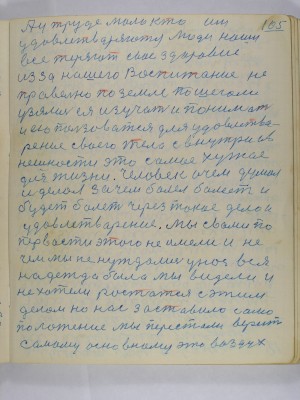 А и труде мало кто им 105
удовлетваряются Люди наши
все теряют свое здаровие
изза нашего Воспитание не
правелно по земле пошегали
взялися изучат и понимат
и его ползоватся для удовлетва
рение своего тела с внутри с в
нешности это самае хужае
для жизни. Человек о чем думал
и делал за чем болел болеет и
будет болет через такое дело и
удовлетварение. Мы с вами по
первасти этого не имели и не
чем мы не нуждалис у нас вся
надежда была мы видели и
не хотели ростатся с этим
делом но нас заставило само
положение мы перестали верит
самаму основнаму это воздух